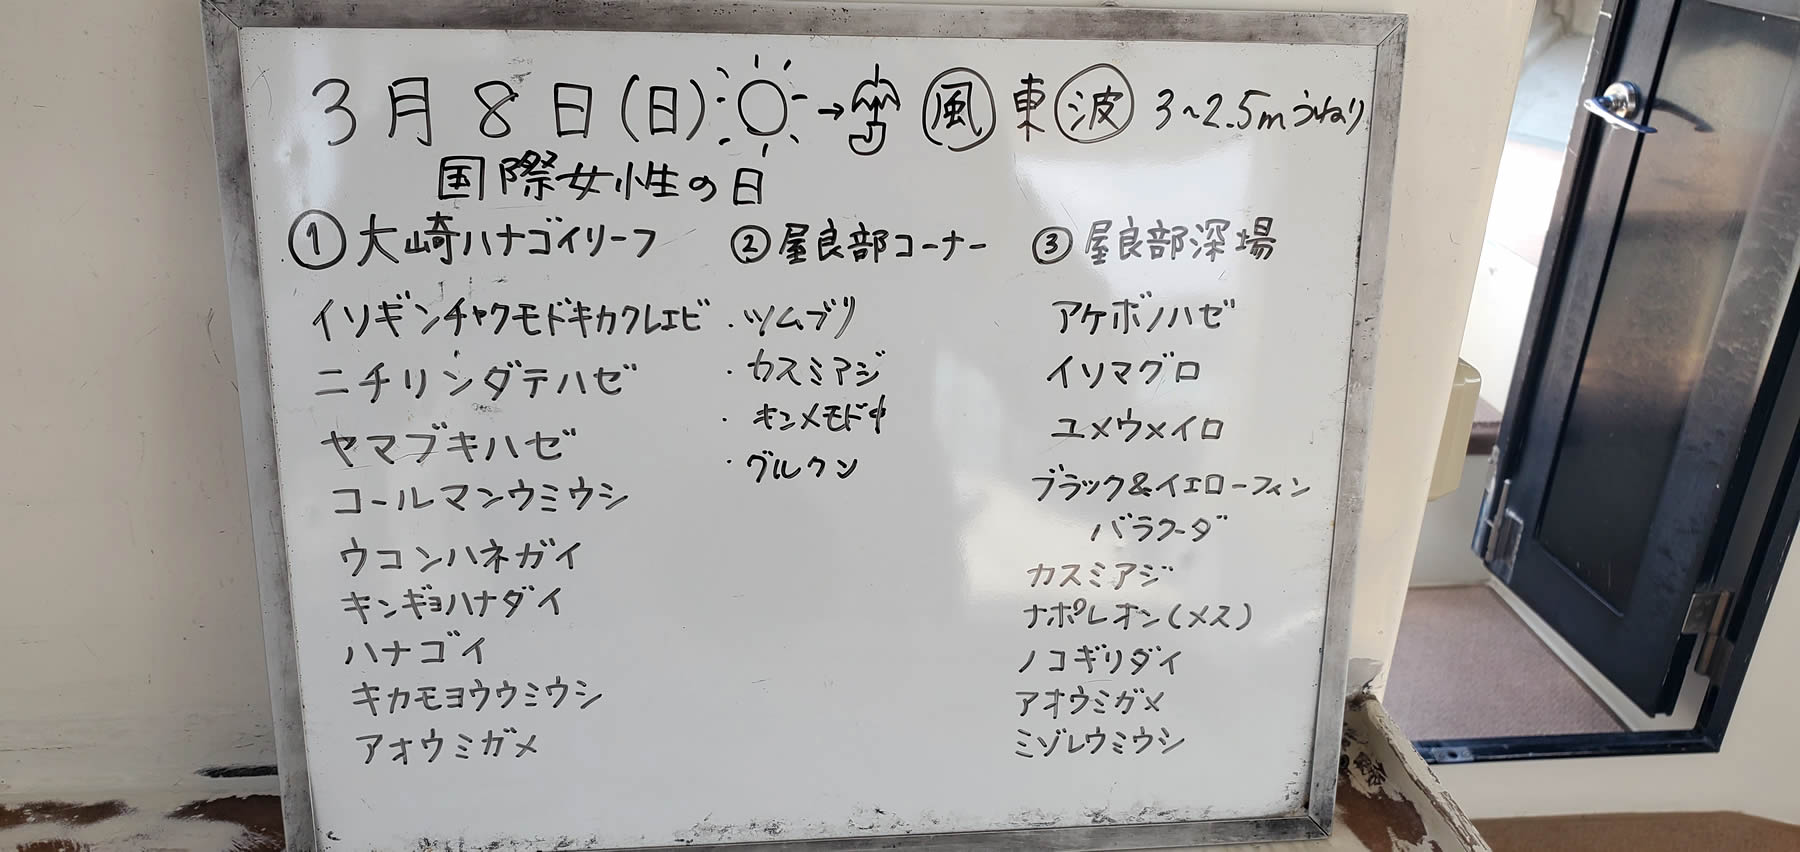 3月8日(日) → 風 東 波 3~2.5mうねり
国際女性の日
① 大崎ハナゴイリーフ
イソギンチャクモドキカクレエビ
ニチリンダテハゼ
ヤマブキハゼ
コールマンウミウシ
ウコンハネガイ
キンギョハナダイ
ハナゴイ
キカモヨウウミウシ
アオウミガメ
② 屋良部コーナー
・ツムブリ
・カスミアジ
・キンメモドキ
・グルクン
③ 屋良部深場
アケボノハゼ
イソマグロ
ユメウメイロ
ブラック&イエローフィン
バラクーダ
カスミアジ
ナポレオン(メス)
ノコギリダイ
アオウミガメ
ミゾレウミウシ